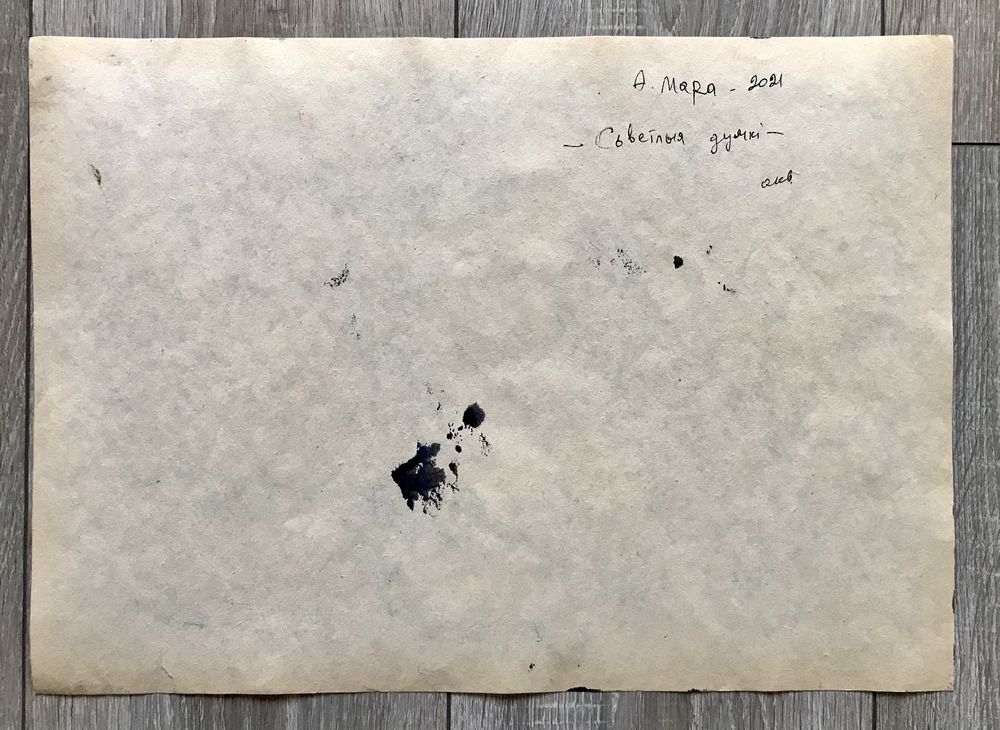 А. Мара - 2021
- Сьветлыя думкі -
акв